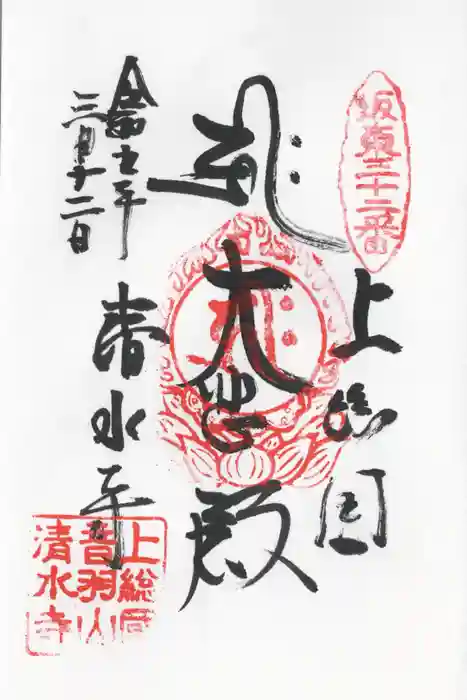 坂東三十二番
上総国
大悲殿
三月十二日
清水寺
上総国
音羽山
清水寺